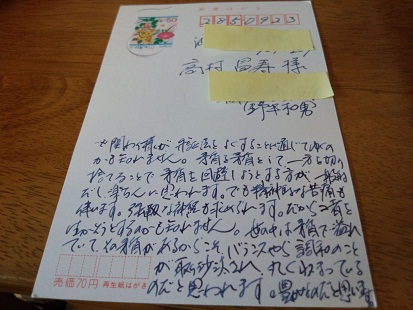 2850923
高村昌寿様
野平和男
と関わり様が弁証法をよくすることに通じてゆくの
かも知れません。矛盾を矛盾として一方を切り
捨てることで矛盾を回避しようとする方が一般的
だし楽ちんに思われます。でも精神的な苦痛も
伴います。強靭な神経も求められます。だから矛盾を
のかも知れません。世の中は矛盾で溢れ
ていて、その矛盾があるからこそ、バランスやら調和のこと
が取り沙汰され、丸くおさまっている
のだと思われます。豊かなのだと思います
売価70円 再生紙はがき